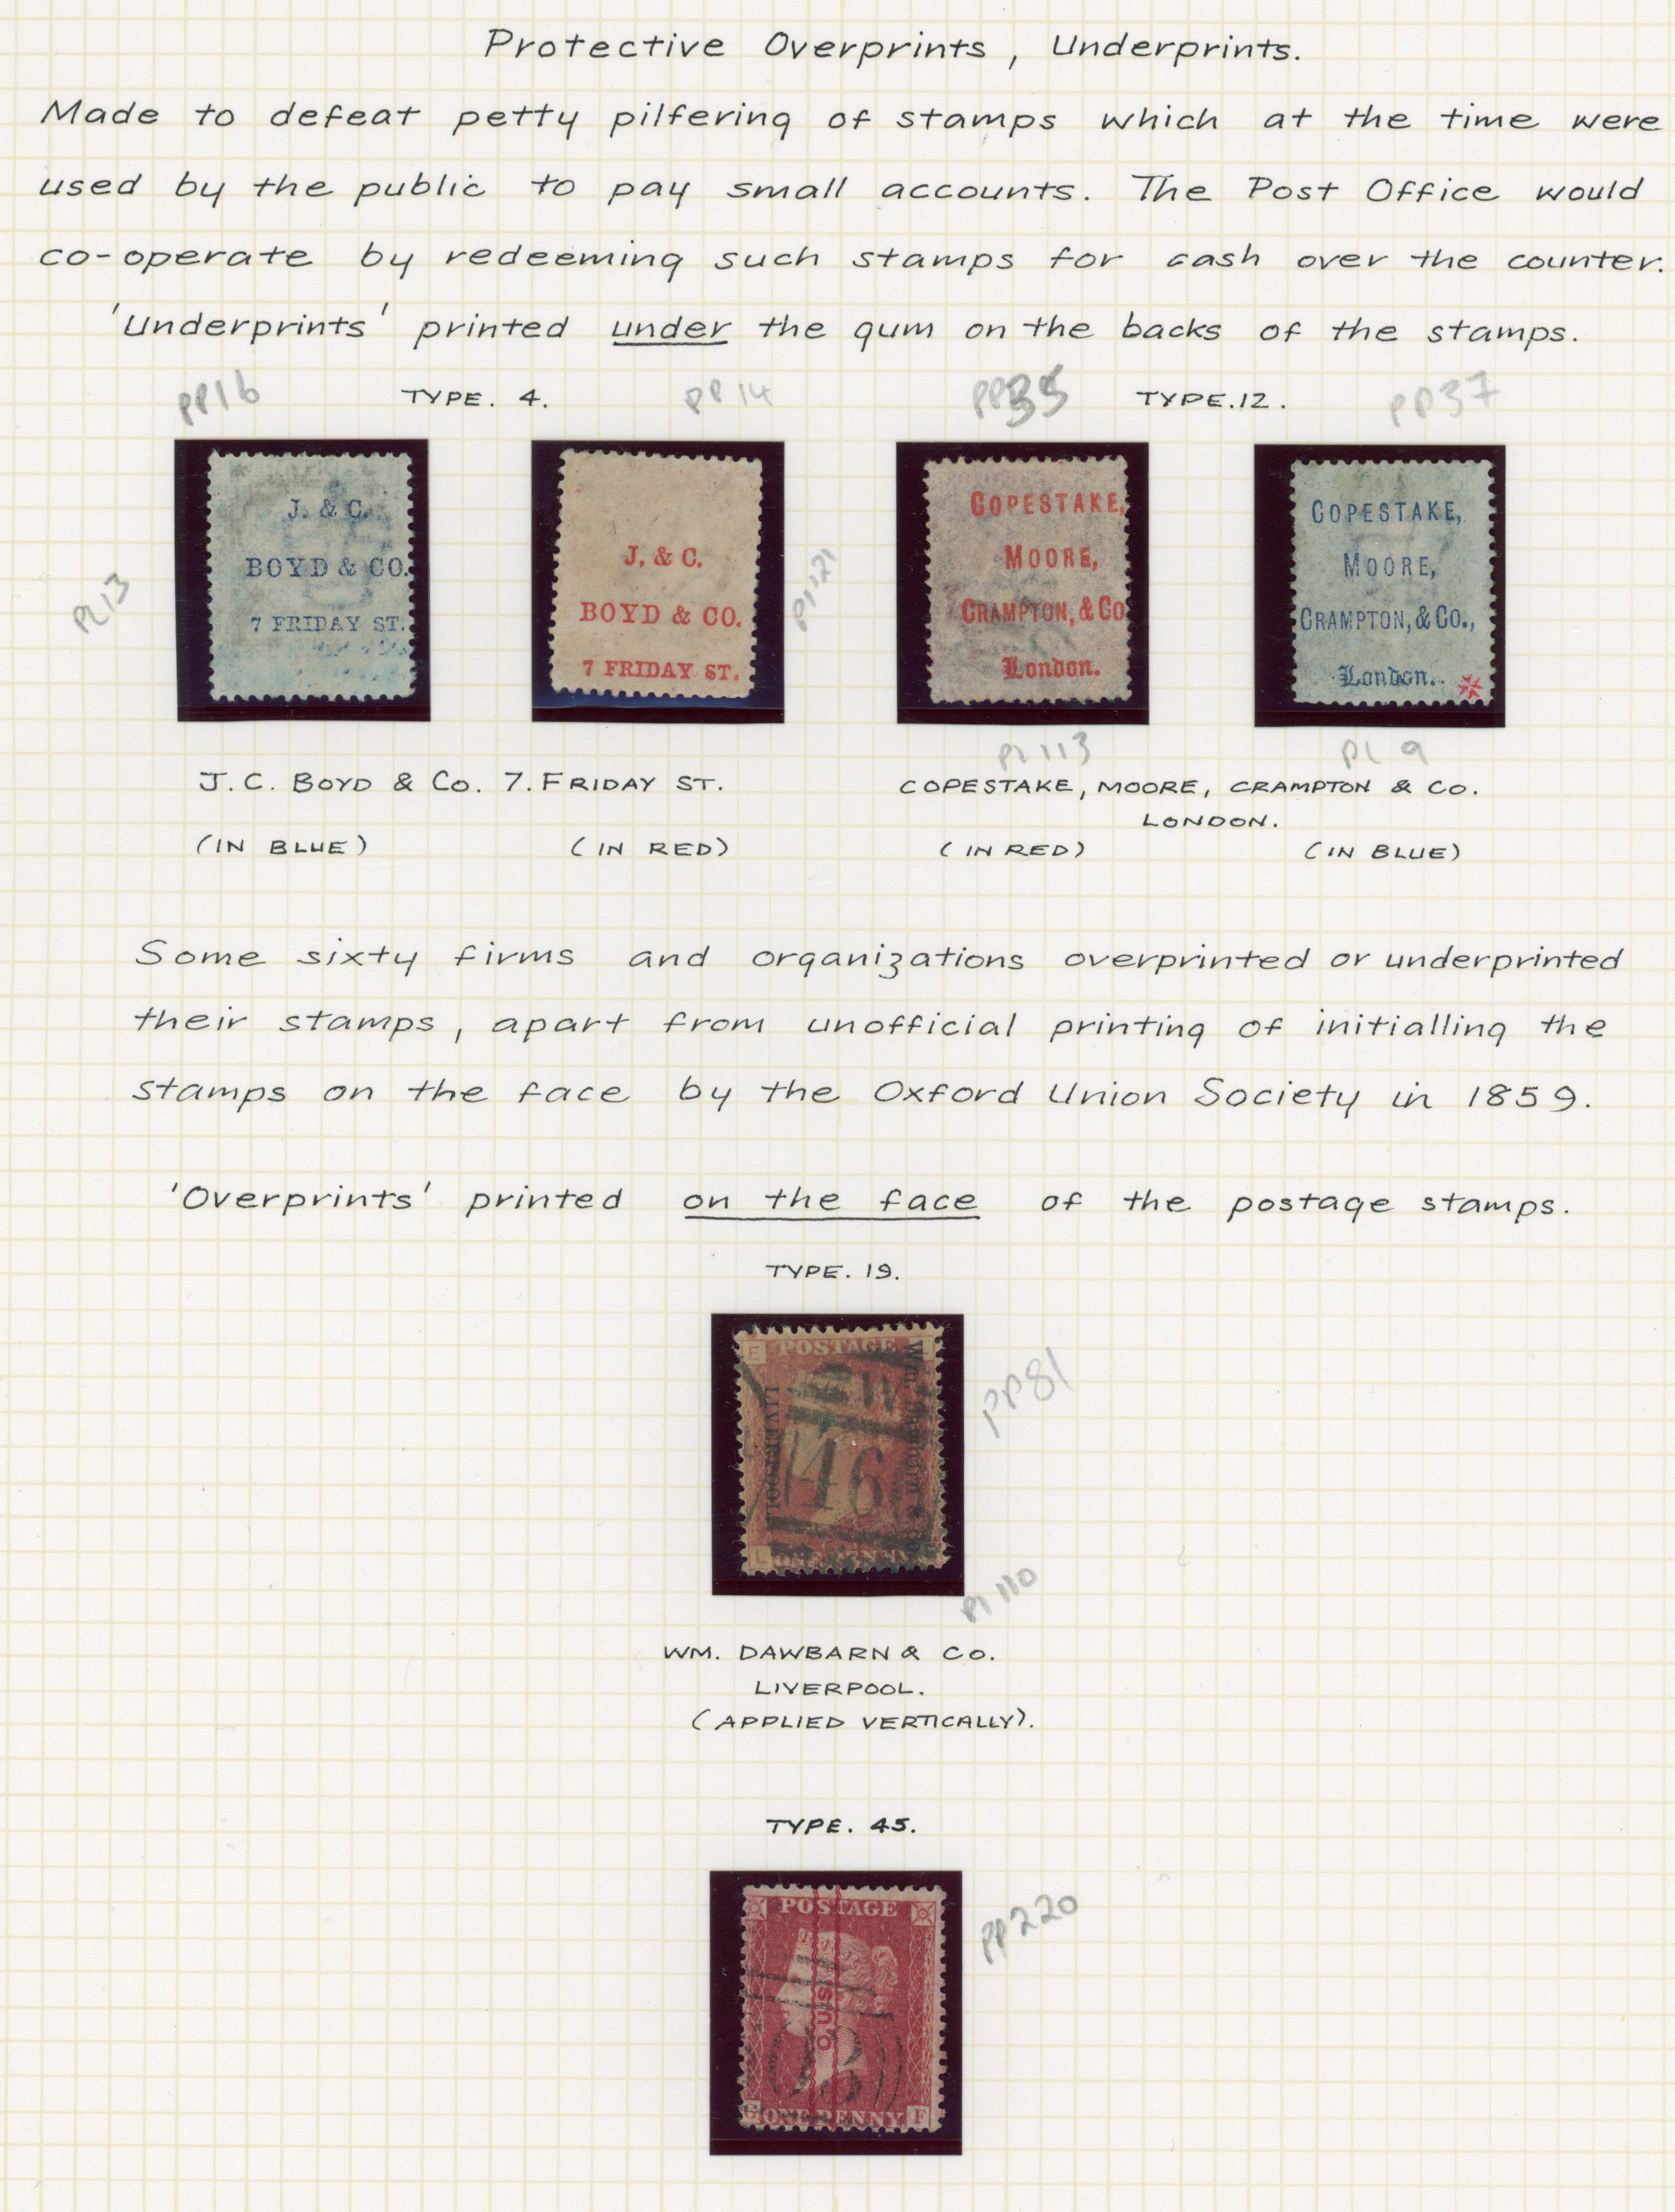 Protective Overprints, Underprints.
Made to defeat petty pilfering of stamps which at the time were
used by the public to pay small accounts. The Post Office would
co-operate by redeeming such stamps for cash over the counter.
'Underprints' printed under the gum on the backs of the stamps.
PP16 TYPE. 4. PP14 PP35 TYPE. 12. PP37
J. & C.
BOYD & CO.
7 FRIDAY ST.
Pl 13
J. & C.
BOYD & CO.
7 FRIDAY ST.
Pl 121
COPESTAKE,
MOORE,
CRAMPTON, & CO
London.
COPESTAKE,
MOORE,
CRAMPTON, & CO.,
London.
Pl 113 Pl 9
J. C. BOYD & Co. 7. FRIDAY ST.
(IN BLUE) (IN RED)
COPESTAKE, MOORE, CRAMPTON & Co.
LONDON.
(IN RED) (IN BLUE)
Some sixty firms and organizations overprinted or underprinted
their stamps, apart from unofficial printing of initialling the
stamps on the face by the Oxford Union Society in 1859.
'Overprints' printed on the face of the postage stamps.
TYPE. 19.
E POSTAGE
LIVERPOOL
W
46
L ONE PENNY
PP81
Pl 110
WM. DAWBARN & Co.
LIVERPOOL.
(APPLIED VERTICALLY).
TYPE. 45.
POSTAGE
O.U.S.
ONE PENNY F
PP220